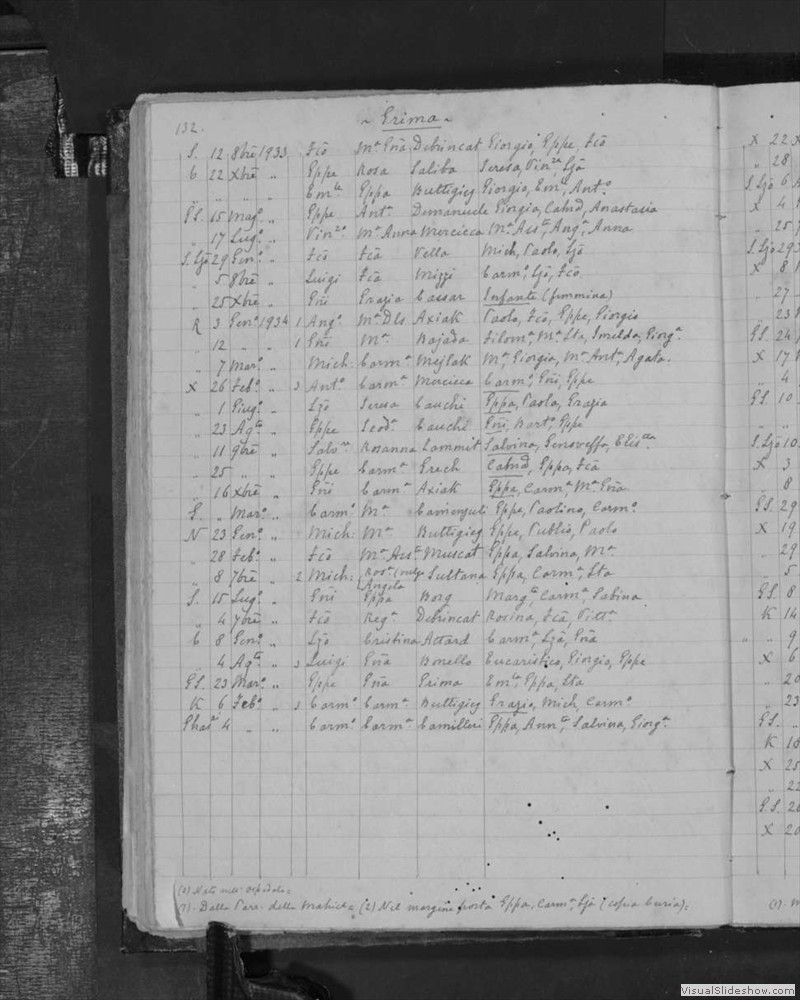 132. ~ Grima ~
S. 12 8bre 1933 Fco Ma Gña Debrincat Giorgio, Gppe, Fco
C 22 Xbre " Gppe Rosa Saliba Teresa, Vinza, Ljã
" " " " Emle Gppa Buttigieg Giorgio, Eml, Anto
GS. 15 Mago " Gppe Anta Demanuele Giorgia, Catnd, Anastasia
" 17 Lugo " Vinzo Ma Anna Mercieca Ma Assta, Anga, Anna
S. Ljõ 29 Geno " Fco Fca Vella Mich, Paolo, Ljõ
" 5 8bre " Luigi Fca Mizzi Carmo, Ljõ, Fco
" 25 Xbre " Gñi Grazia Cassar Infante (femmina)
R 3 Geno 1934 1 Ango Ma Dls Axiak Paolo, Fco, Gppe, Giorgio
" 12 " " 1 Gñi Ma Bajada Filoma, Ma Sta, Imelda, Giorga
" 7 Maro " Mich: Carma Mejlak Ma Giorgia, Ma Anta, Agata.
X 26 Febo " 3 Anto Carma Mercieca Carmo, Gñi, Gppe
" 1 Giugo " Ljõ Teresa Cauchi Gppa, Paola, Grazia
" 23 Agto " Gppe Teoda Cauchi Gñi, Barto, Gppe
" 11 9bre " Salvre Rosanna Zammit Salvina, Genoveffa,
" 25 " " Gppe Carma Grech Catnd, Gppa, Fca
" 16 Xbre " Gñi Carma Axiak Gppa, Carma, Ma Gña
G. " Maro " Carmo Ma Camenzuli Gppe, Paolino, Carmo
N 23 Geno " Mich: Ma Buttigieg Gppe, Publio, Paolo
" 28 Febo " Fco Ma Assta Muscat Gppa, Salvina, Ma
" 8 7bre " 2 Mich: Angela Sultana Gppa, Carma, Sta
S. 15 Lugo " Gñi Gppa Borg Marga, Carma, Sabina
" 4 7bre " Fco Rega Debrincat Rosina, Fca, Vitta
C 8 Geno " Ljõ Cristina Attard Carma, Ljã, Gña
" 4 Agto " 3 Luigi Gña Bonello Eucaristico, Giorgio, Gppe
GS. 23 Maro " Gppe Gña Grima Emla, Gppa, Sta
K 6 Febo " 3 Carmo Carma Buttigieg Grazio, Mich, Carmo
Ghar 4 " " Carmo Carma Camilleri Gppa, Anna, Salvina, Giorga
(3) Nato nell' ospedale=
(1). Dalla Parr. della (2) Nel margine porta Gppa, Carma, Ljã (copia Curia)=
X 22
" 28
S. Ljõ 6
X 4
" 25
S. Ljõ 29
X 8
" 27
" 23
GS. 24
X 17
" 4
GS. 10
S. Ljõ 10
X 3
" 8
GS. 29
X 19
" 29
" 5
GS. 8
K 14
" " 9
X 6
" 20
" 23
GS. "
K 18
X 25
" 22
GS. 26
X 20
VisualSlideshow.com